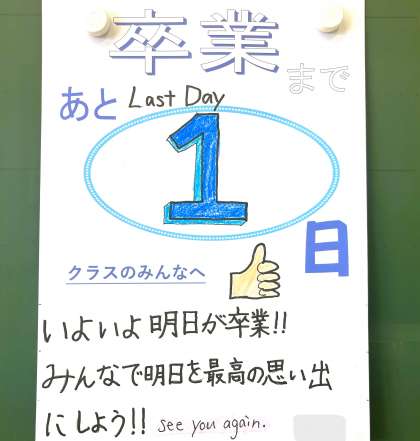 卒業まで
あと Last Day
1
日
クラスのみんなへ
いよいよ明日が卒業!!
みんなで明日を最高の思い出
にしよう!! see you again.